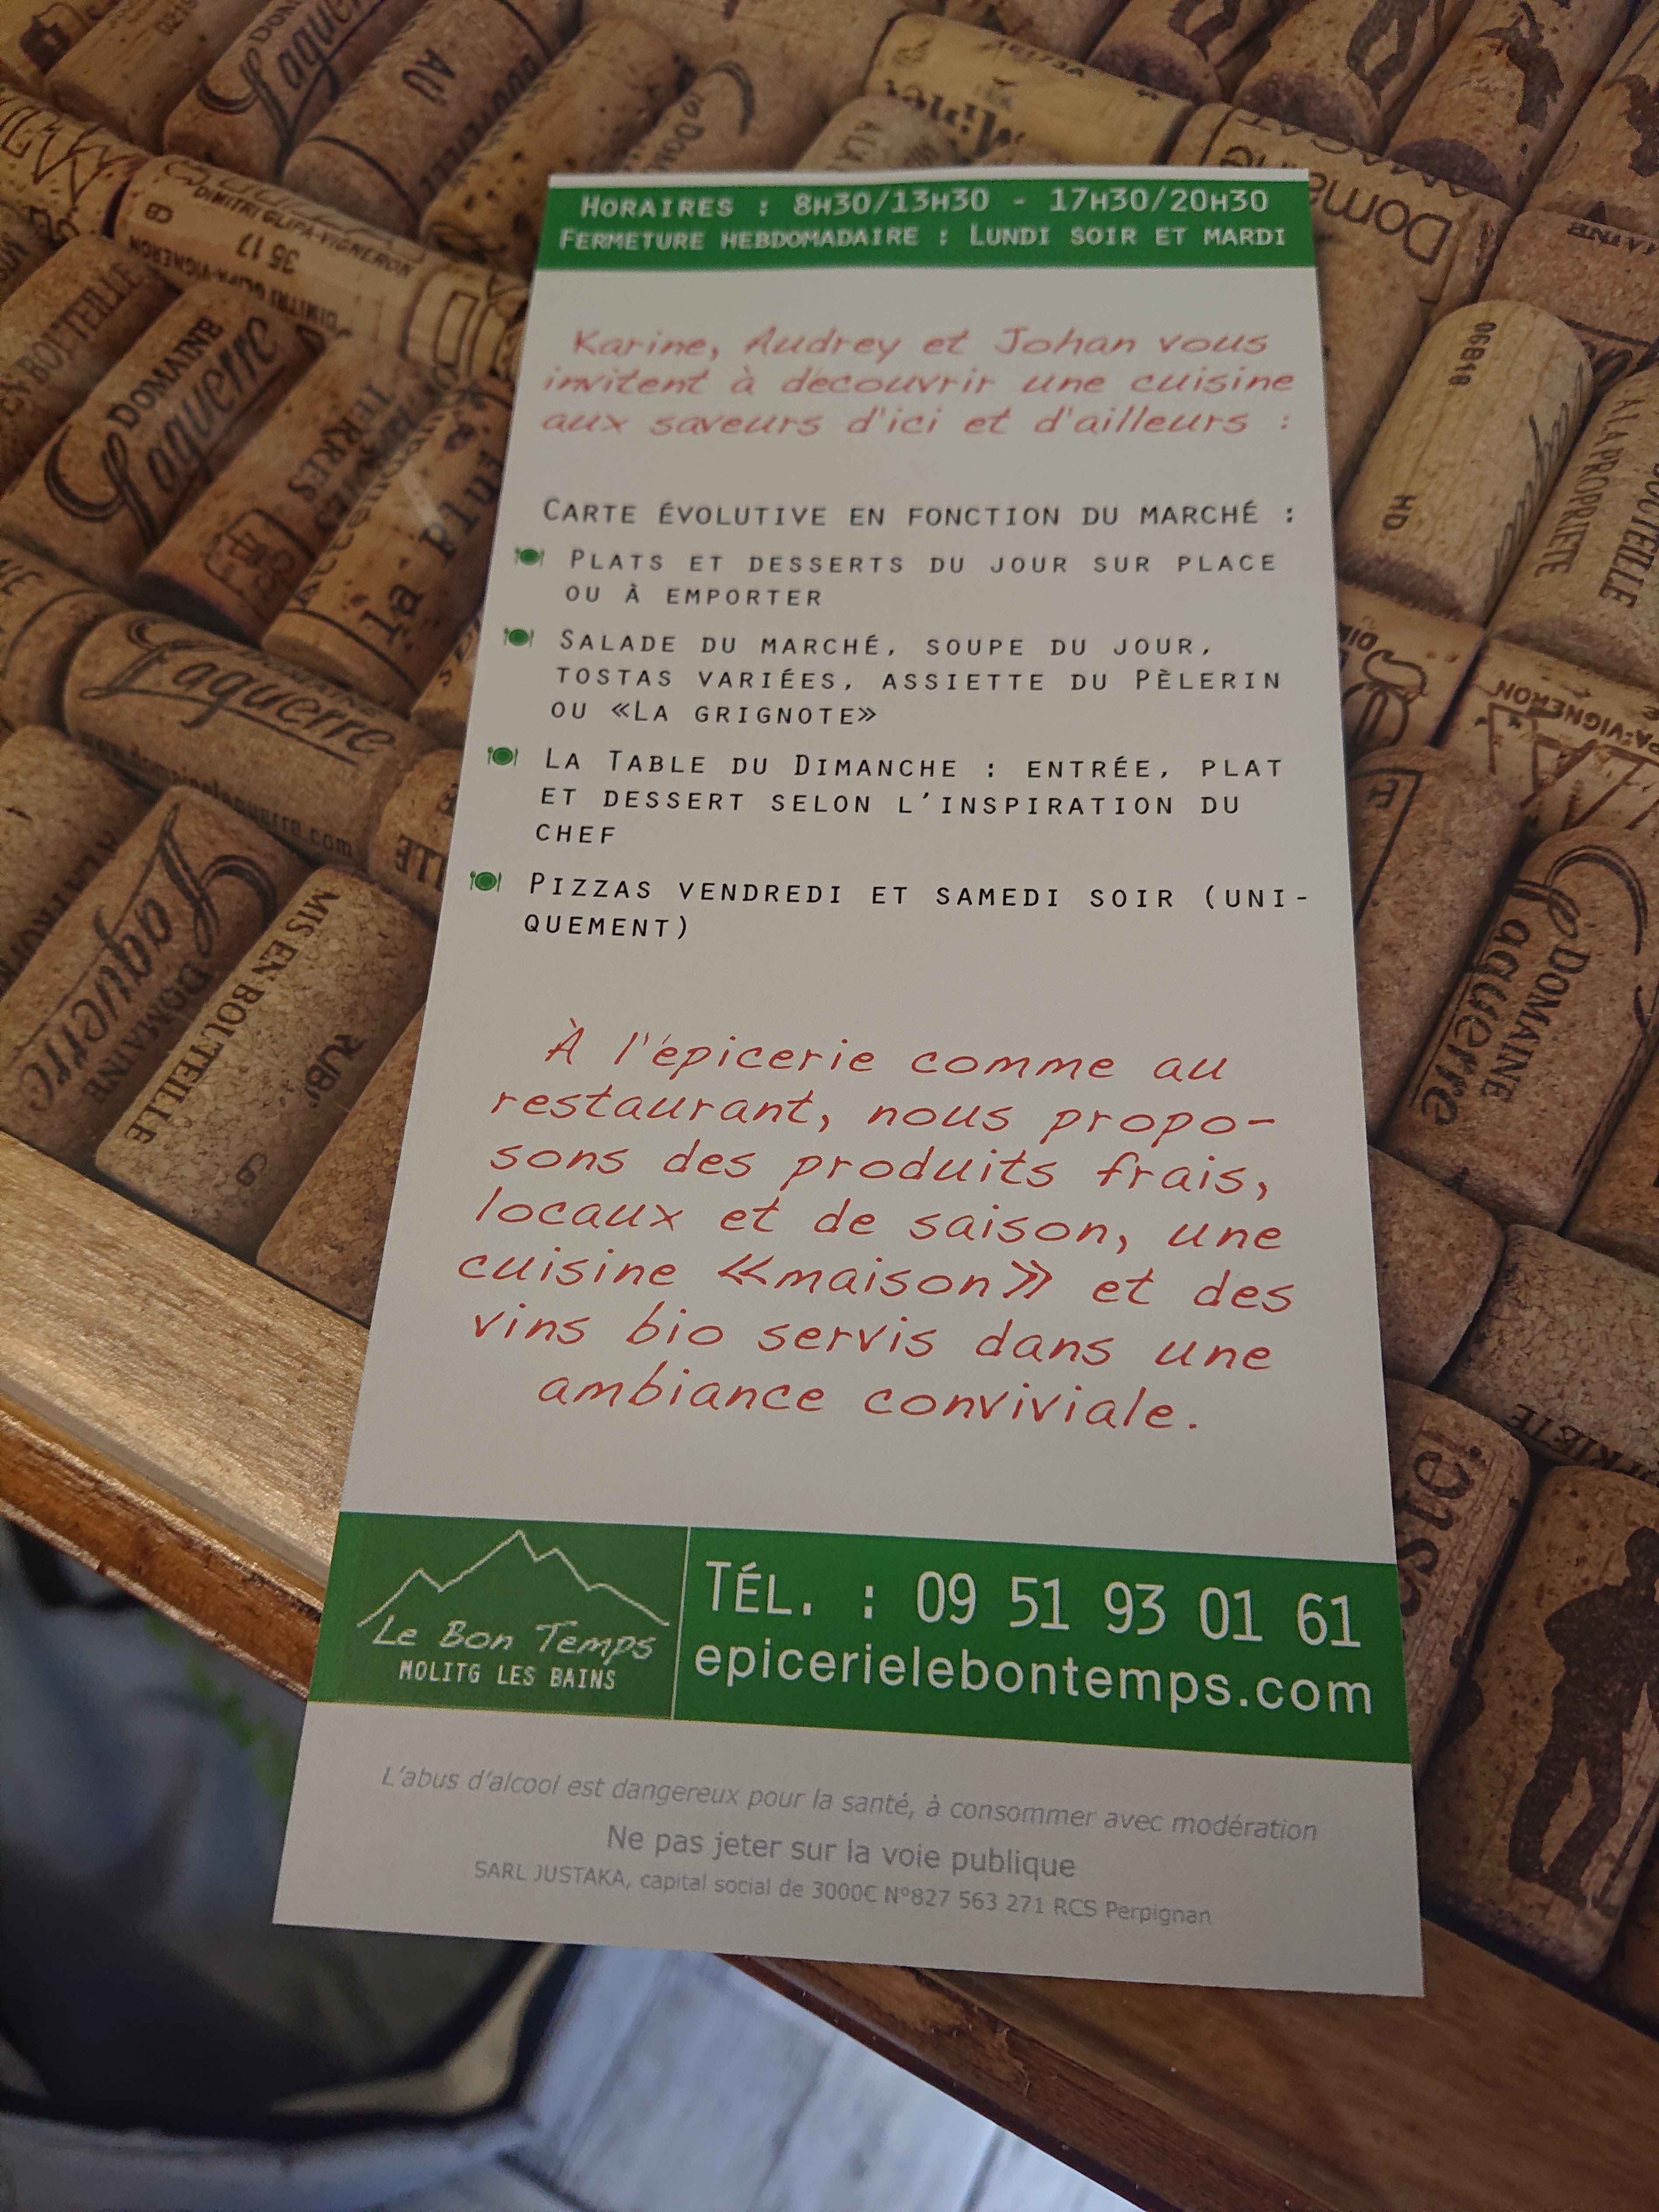 HORAIRES : 8H30/13H30 - 17H30/20H30
FERMETURE HEBDOMADAIRE : LUNDI SOIR ET MARDI
Karine, Audrey et Johan vous
invitent à découvrir une cuisine
aux saveurs d'ici et d'ailleurs :
CARTE ÉVOLUTIVE EN FONCTION DU MARCHÉ :
PLATS ET DESSERTS DU JOUR SUR PLACE
OU À EMPORTER
SALADE DU MARCHÉ, SOUPE DU JOUR,
TOSTAS VARIÉES, ASSIETTE DU PÈLERIN
OU «LA GRIGNOTE»
LA TABLE DU DIMANCHE : ENTRÉE, PLAT
ET DESSERT SELON L'INSPIRATION DU
CHEF
PIZZAS VENDREDI ET SAMEDI SOIR (UNI-
QUEMENT)
À l'épicerie comme au
restaurant, nous propo-
sons des produits frais,
locaux et de saison, une
cuisine «maison» et des
vins bio servis dans une
ambiance conviviale.
Le Bon Temps
MOLITG LES BAINS
TÉL. : 09 51 93 01 61
epicerielebontemps.com
L'abus d'alcool est dangereux pour la santé, à consommer avec modération
Ne pas jeter sur la voie publique
SARL JUSTAKA, capital social de 3000€ N°827 563 271 RCS Perpignan
Laguerre
AU
DIMITRI GLIPA-VIGNERON
35 17
CB
DOMAINE
Laguerre
TERRES
la Plu
Laguerre
Laguerre
DOMAINE
MIS EN BOUTEILLE
CB
Domaine
06B18
HD
A LA PROPRIETE
BOUTEILLE
DOMAINE
Laguerre